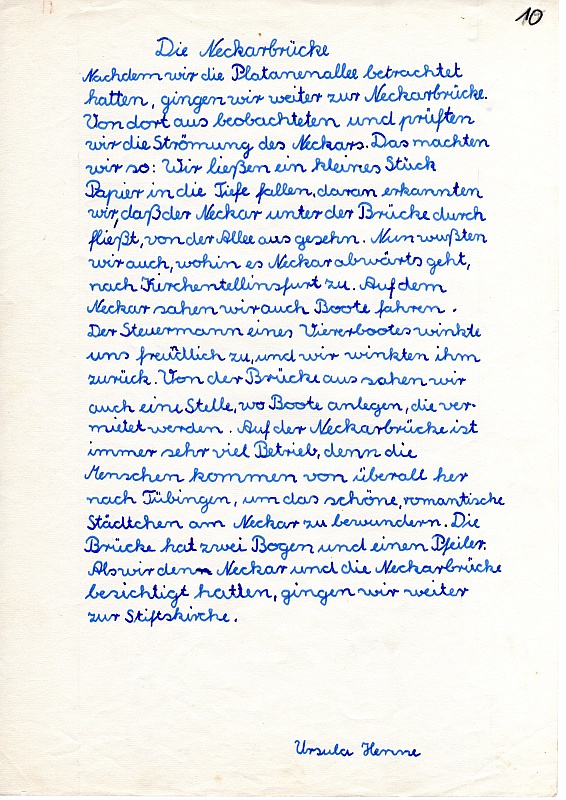 10
Die Neckarbrücke
Nachdem wir die Platanenallee betrachtet
hatten, gingen wir weiter zur Neckarbrücke.
Von dort aus beobachteten und prüften
wir die Strömung des Neckars. Das machten
wir so: Wir ließen ein kleines Stück
Papier in die Tiefe fallen, daran erkannten
wir, daß der Neckar unter der Brücke durch
fließt, von der Allee aus gesehn. Nun wußten
wir auch, wohin es Neckarabwärts geht,
nach Kirchentellinsfurt zu. Auf dem
Neckar sahen wir auch Boote fahren.
Der Steuermann eines Viererbootes winkte
uns freudlich zu, und wir winkten ihm
zurück. Von der Brücke aus sahen wir
auch eine Stelle, wo Boote anlegen, die ver-
mietet werden. Auf der Neckarbrücke ist
immer sehr viel Betrieb, denn die
Menschen kommen von überall her
nach Tübingen, um das schöne, romantische
Städtchen am Neckar zu bewundern. Die
Brücke hat zwei Bogen und einen Pfeiler.
Als wir den Neckar und die Neckarbrücke
besichtigt hatten, gingen wir weiter
zur Stiftskirche.
Ursula Henne